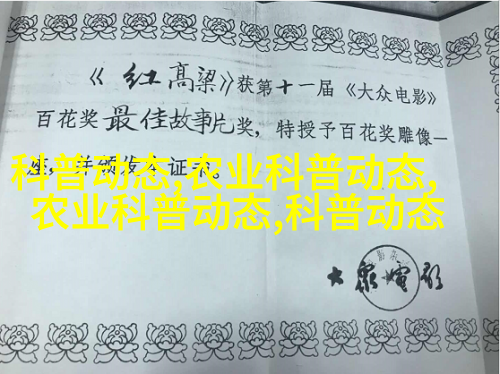 《红高梁》获第十一届《大众电影》
百花奖最佳故事片奖，特授予百花奖雕像一
座，并颁发本证书。
科普动态,农业科普动态,
农业科普动态,科普动态
大眾電影